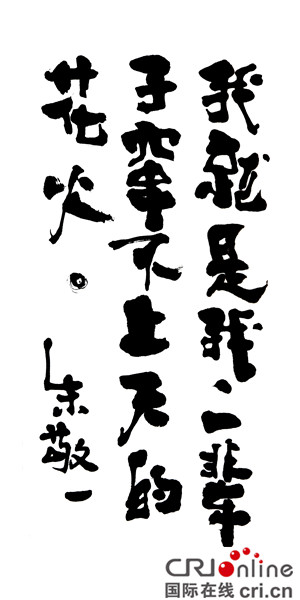 我就是我、一辈
子窜不上天的
花火。
朱敬一
CRIonline
国际在线 cri.cn